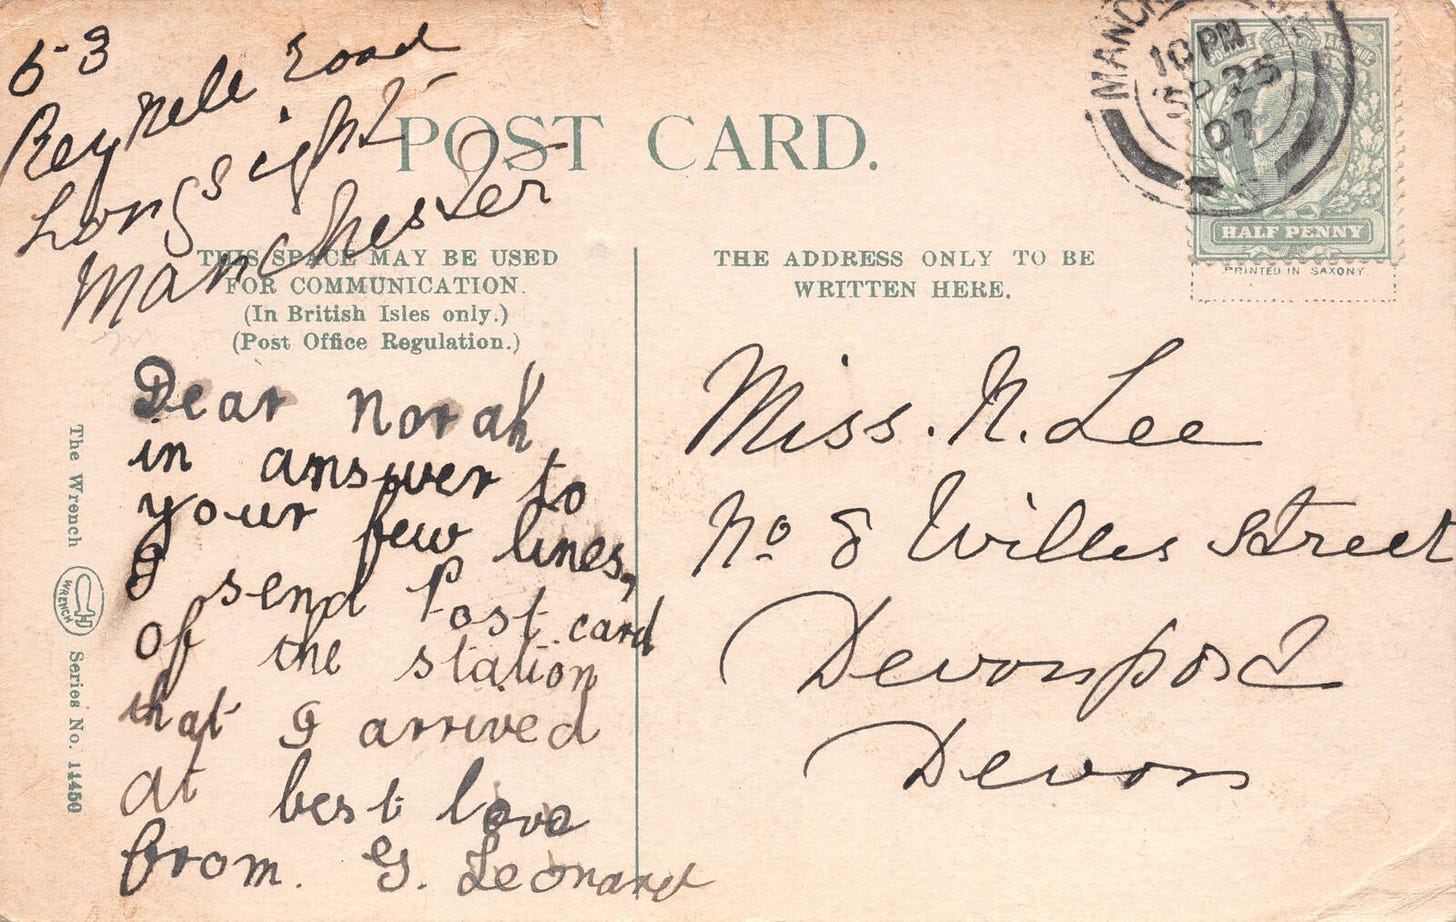 53
Reynell road
Longsight
Manchester
POST CARD.
THIS SPACE MAY BE USED
FOR COMMUNICATION.
(In British Isles only.)
(Post Office Regulation.)
Dear Norah
in answer to
your few lines,
I send Post card
of the station
that I arrived
at best love
from. G. Leonard
The Wrench
WRENCH
Series No. 11450
MANCH
10 PM
SP 25
07
HALF PENNY
PRINTED IN SAXONY.
THE ADDRESS ONLY TO BE
WRITTEN HERE.
Miss. N. Lee
No 8 Willes Street
Devonport
Devon